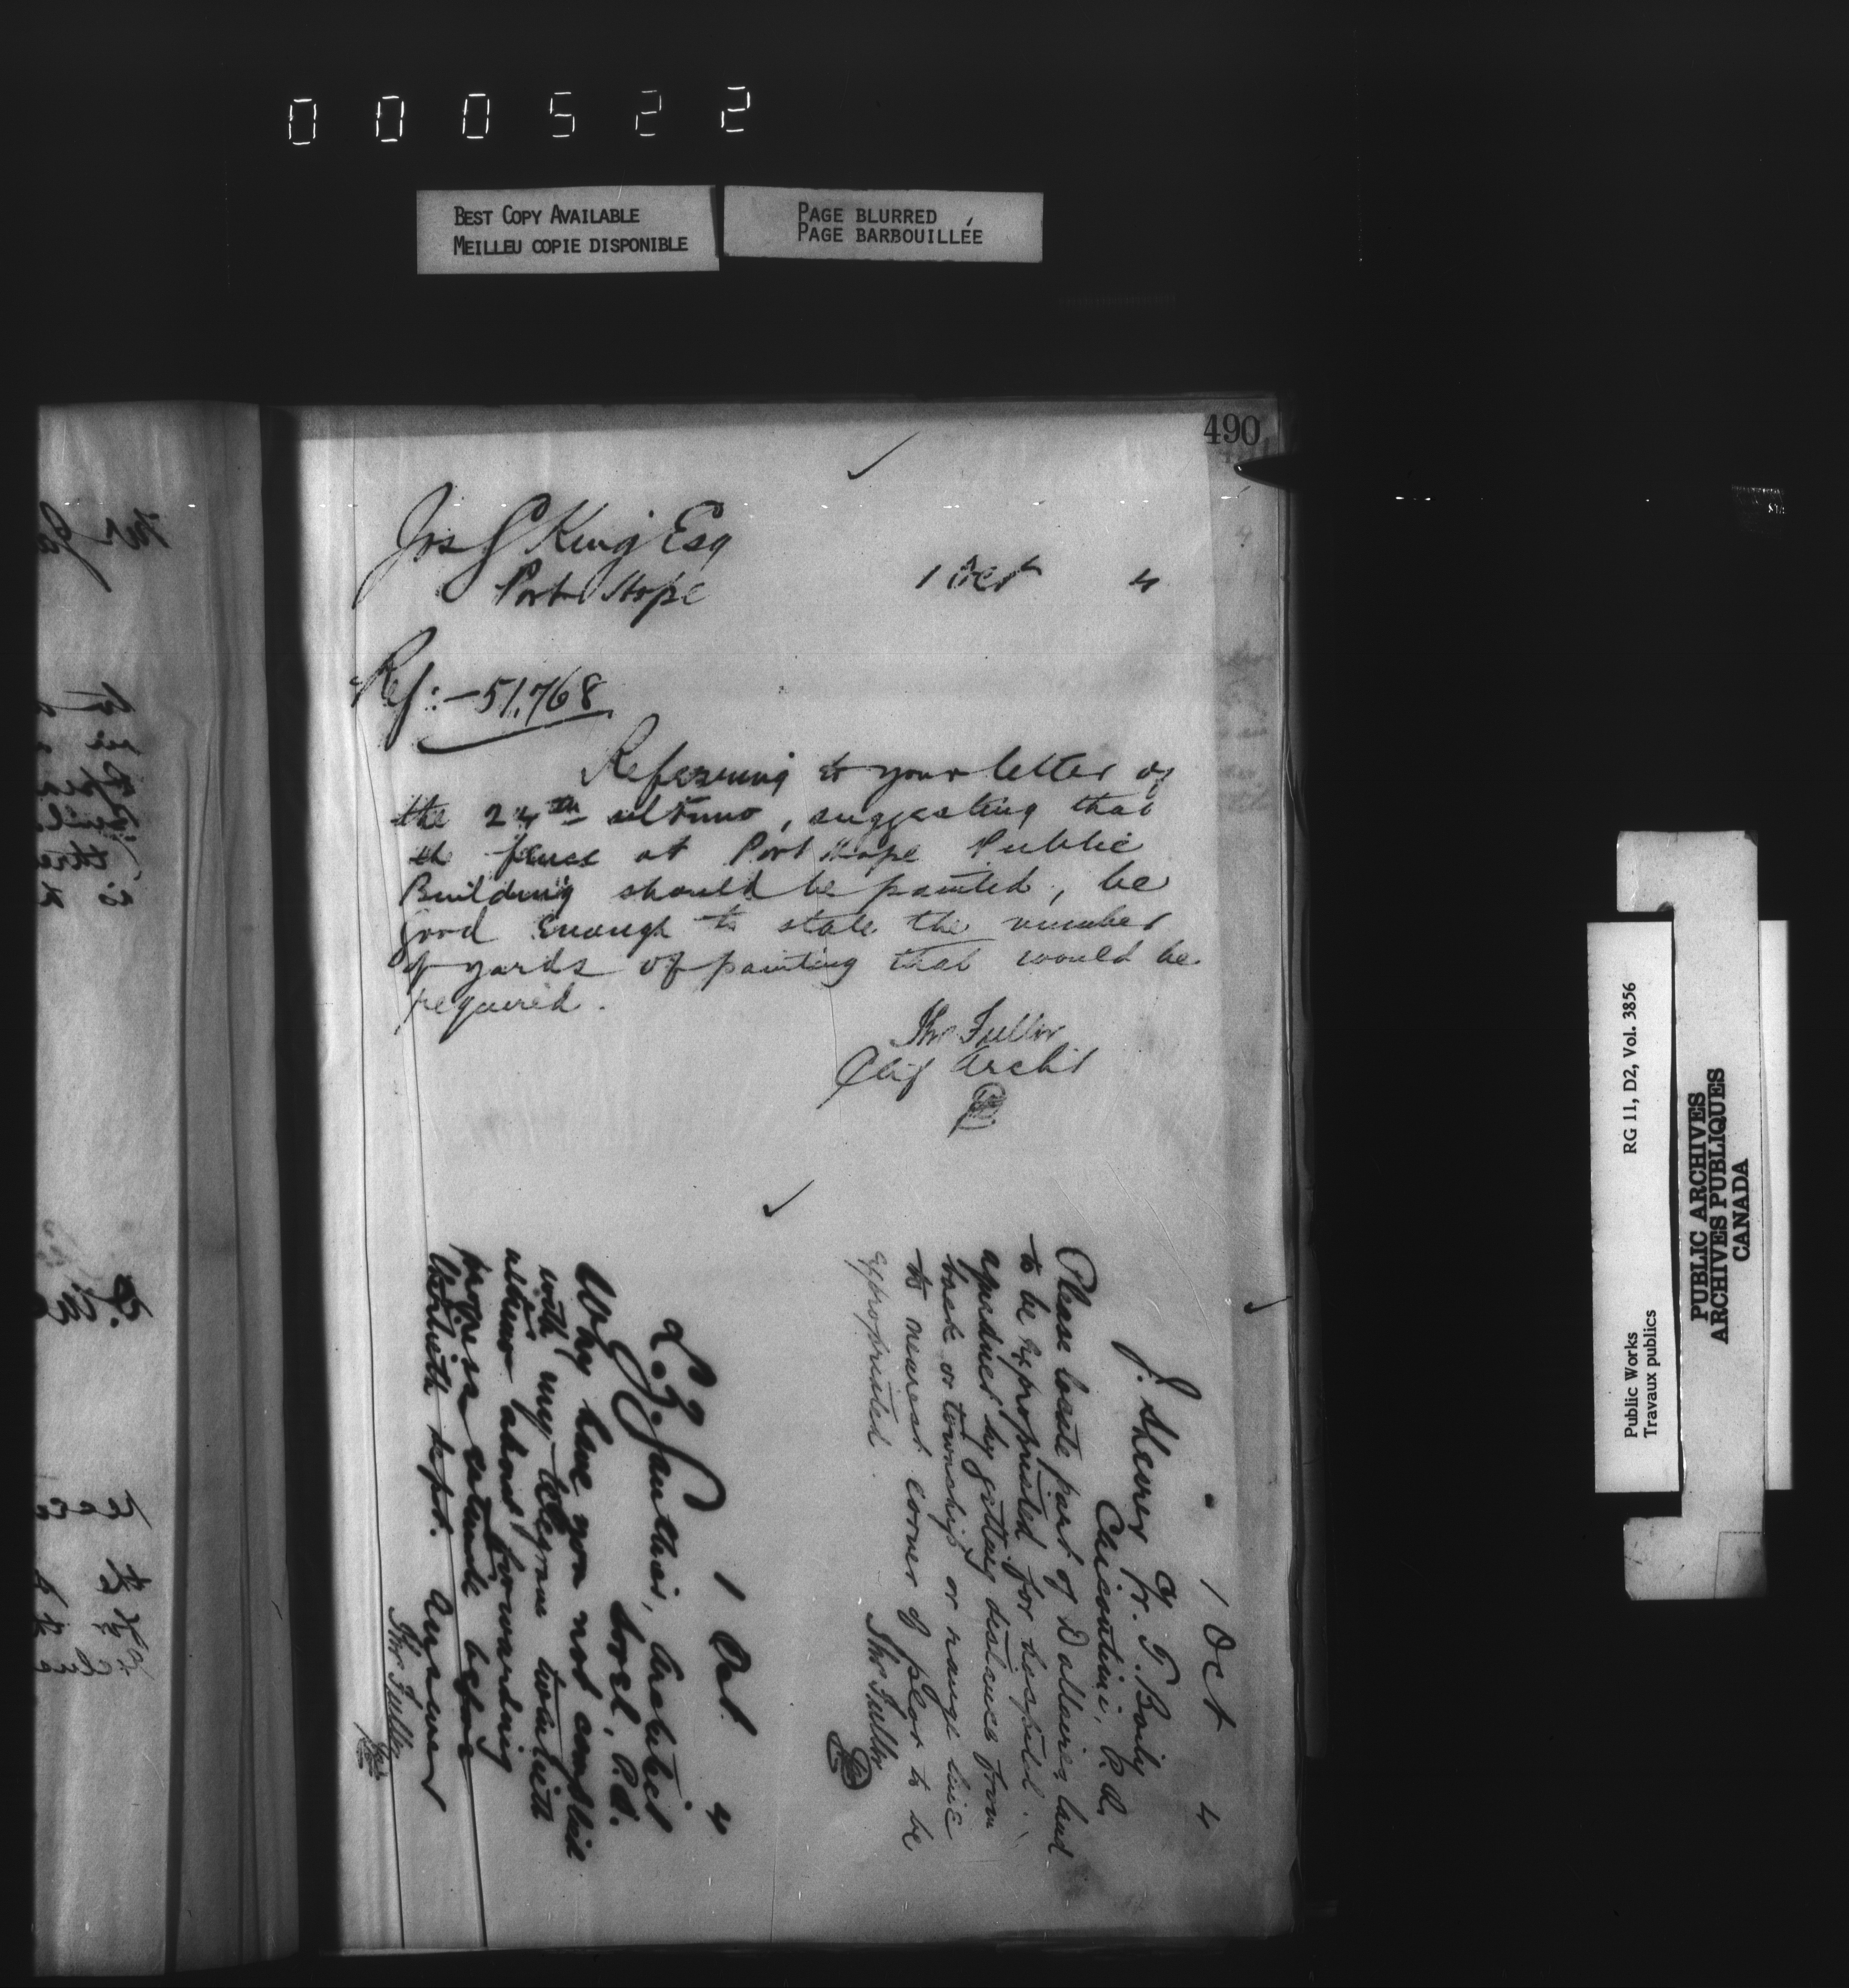 000522
BEST COPY AVAILABLE
MEILLEU COPIE DISPONIBLE
PAGE BLURRED
PAGE BARBOUILLÉE
490
Jos G King Esq
Port Hope
1 Oct 4
Ref:–51,768
Referring to your letter of
the 24th ultimo, suggesting that
the fence at Port Hope Public
Building should be painted, be
good enough to state the number
of yards of painting that would be
required.
Thos Fuller
Chif Archt
1 Oct 4
J. Shearer
Chicoutimi, P.Q.
Please locate part of D land
to be expropriated for hospital
by getting distance from
back or township or range line
to nearest corner of to be
expropriated.
Thos Fuller
1 Oct. 4
L. Z. Gauthier, Architect
Sorel, P.Q.
Why have you not complied
with my telegram twentieth
ultimo about forwarding
progress estimate before
thirtieth Sept. Answer
Thos Fuller
Public Works RG 11, D2, Vol. 3856
Travaux publics
PUBLIC ARCHIVES
ARCHIVES PUBLIQUES
CANADA